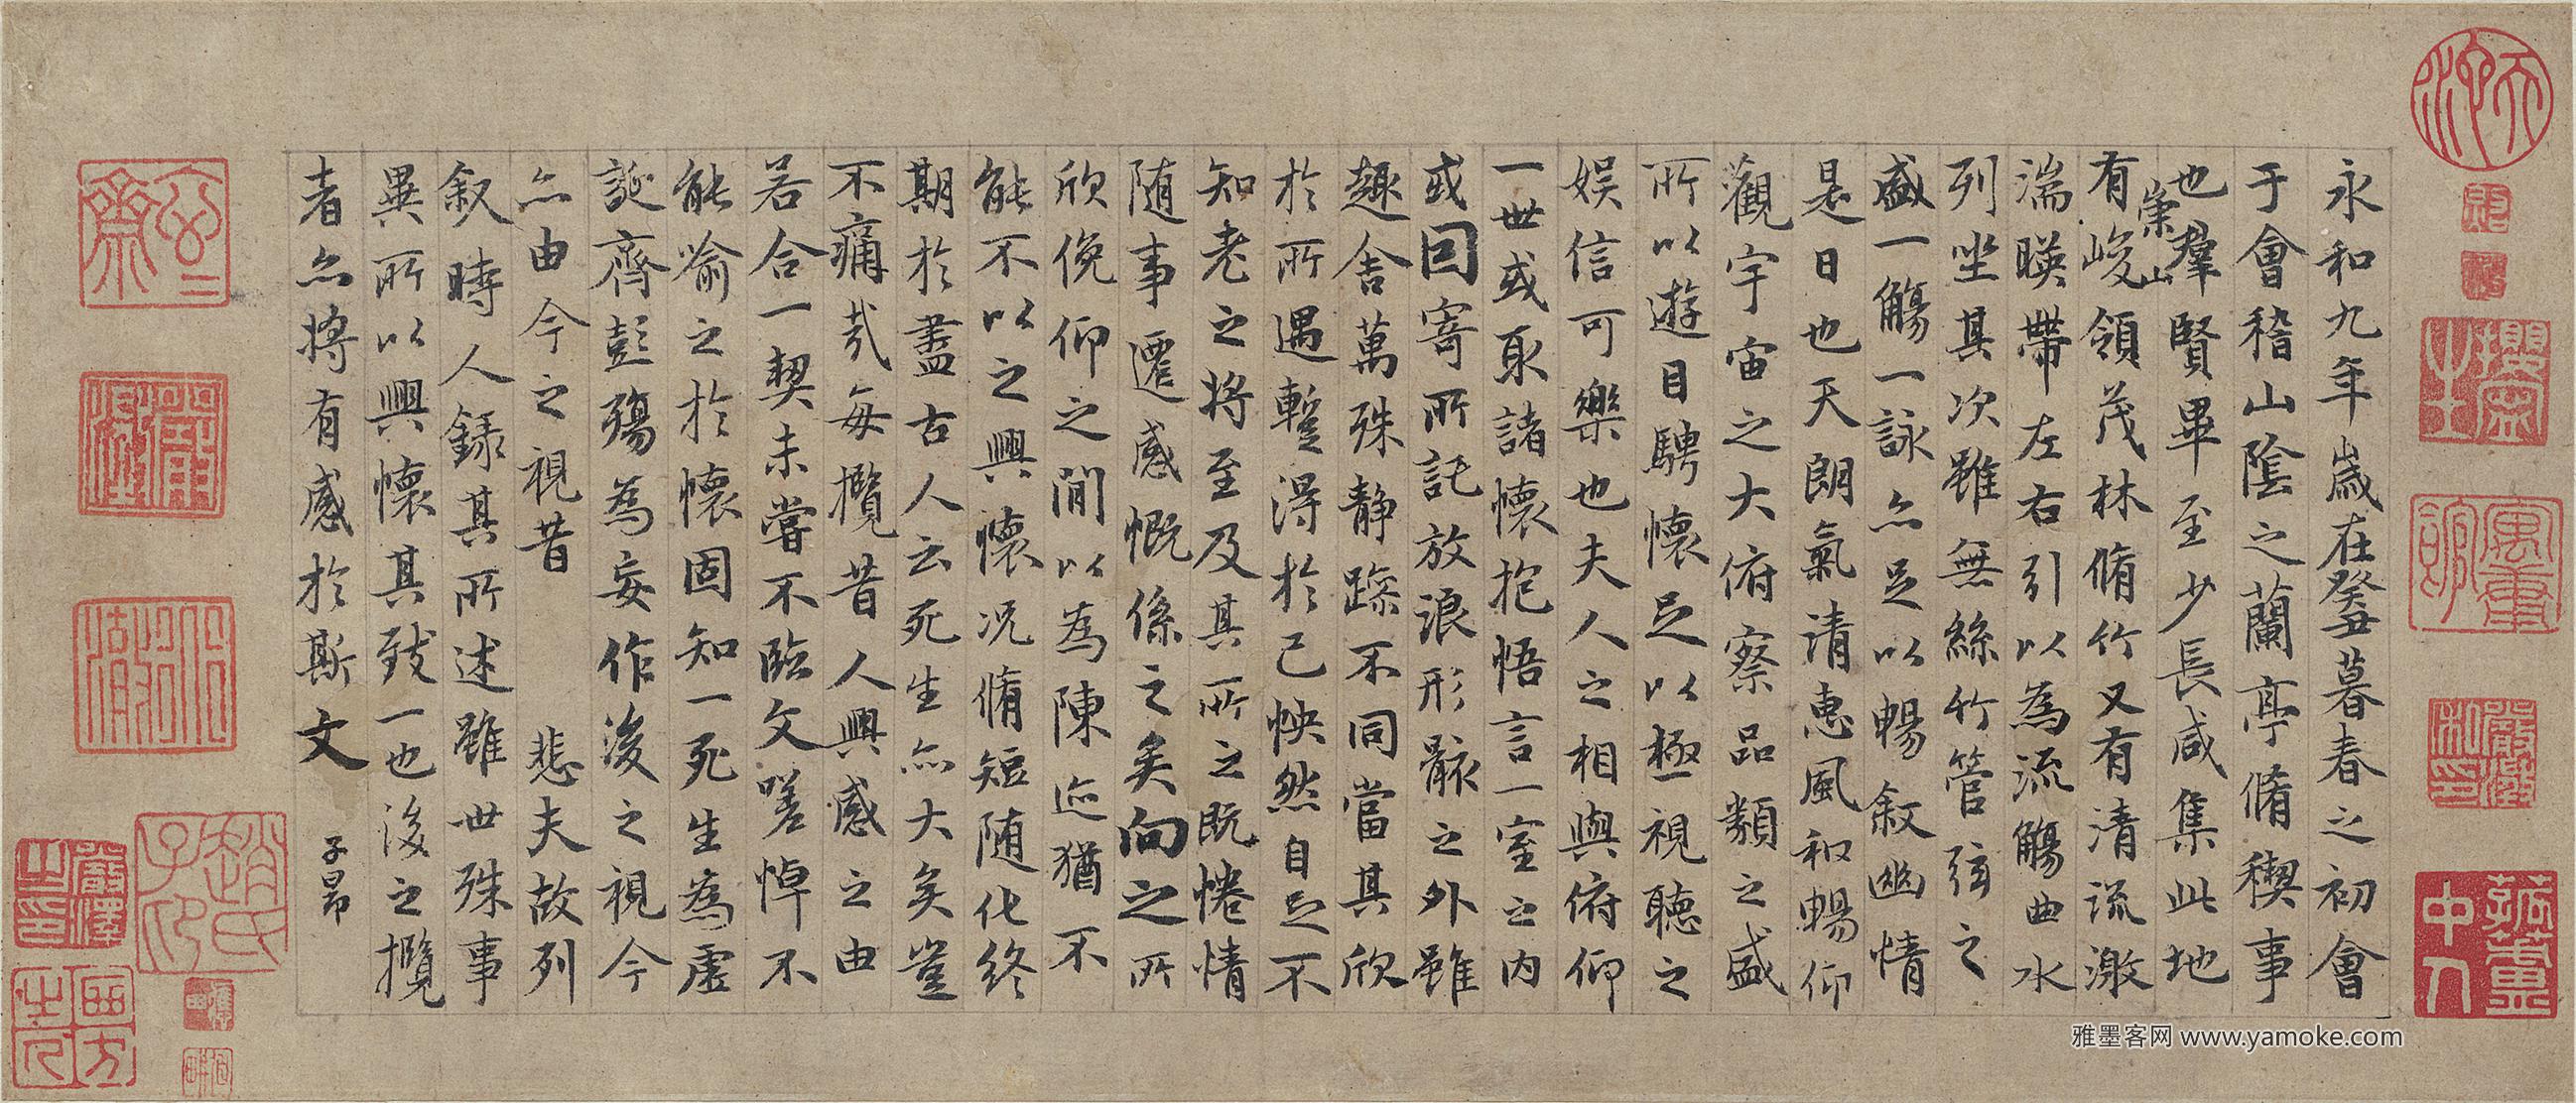 永和九年歲在癸丑暮春之初會
于會稽山陰之蘭亭脩稧事
也羣賢畢至少長咸集此地
有崇山峻領茂林脩竹又有清流激
湍暎帶左右引以為流觴曲水
列坐其次雖無絲竹管弦之
盛一觴一詠亦足以暢叙幽情
是日也天朗氣清惠風和暢仰
觀宇宙之大俯察品類之盛
所以遊目騁懷足以極視聽之
娱信可樂也夫人之相與俯仰
一世或取諸懷抱悟言一室之内
或因寄所託放浪形骸之外雖
趣舍萬殊静躁不同當其欣
於所遇蹔得於己怏然自足不
知老之将至及其所之既惓情
随事遷感慨係之矣向之所
欣俛仰之閒以為陳迹猶不
能不以之興懷况脩短随化終
期於盡古人云死生亦大矣豈
不痛哉每攬昔人興感之由
若合一契未嘗不臨文嗟悼不
能喻之於懷固知一死生為虛
誕齊彭殤為妄作後之視今
亦由今之視昔 悲夫故列
叙時人錄其所述雖世殊事
異所以興懷其致一也後之攬
者亦將有感於斯文
子昂
趙氏子昂
雅墨客网 www.yamoke.com